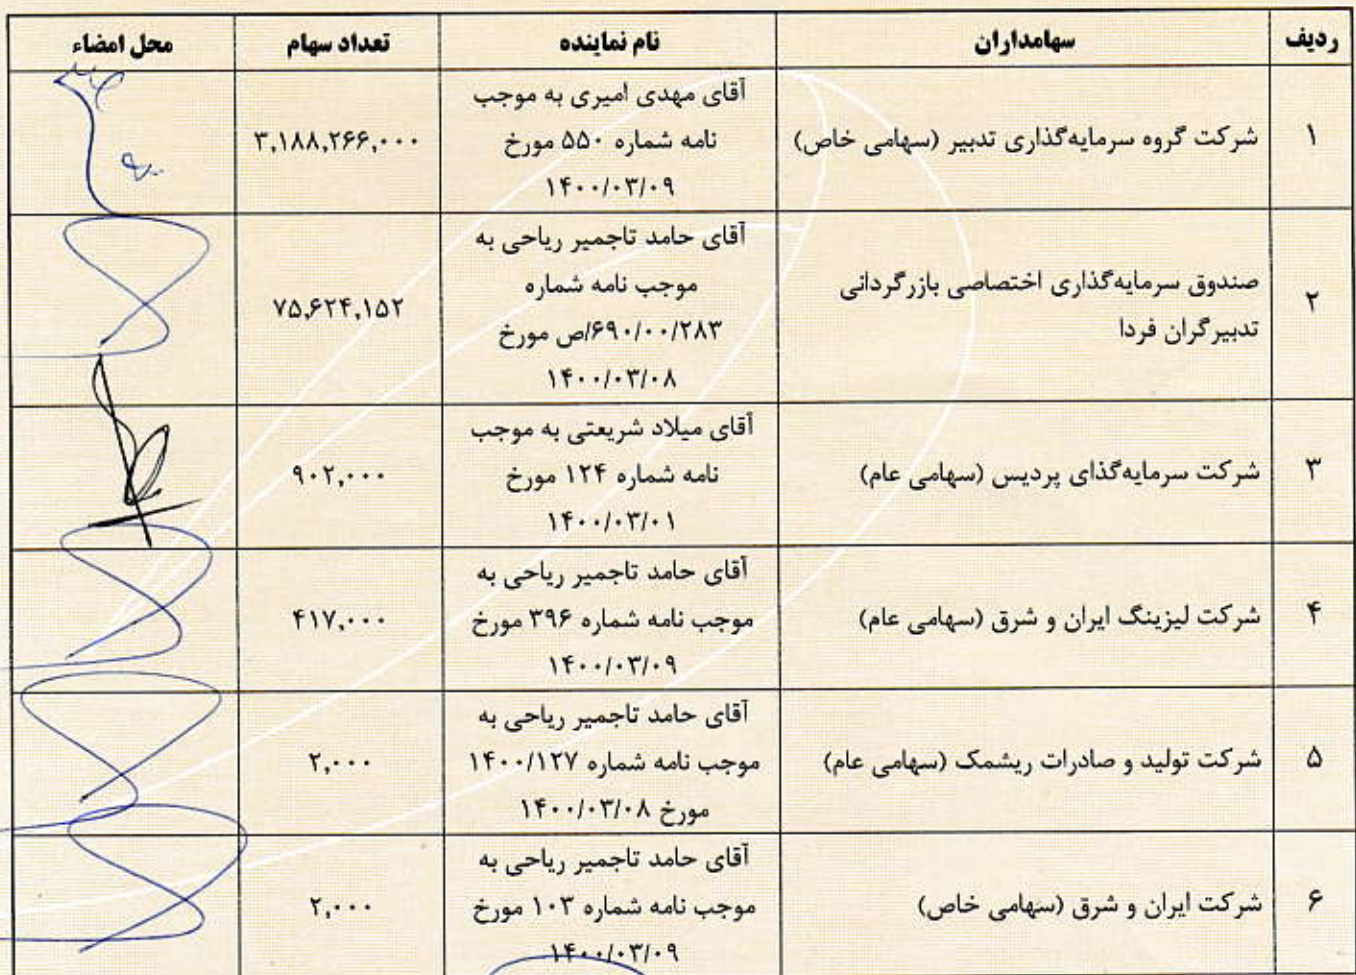 ردیف سهامداران نام نماینده تعداد سهام محل امضاء
۱ شرکت گروه سرمایه‌گذاری تدبیر (سهامی خاص) آقای مهدی امیری به موجب
نامه شماره ۵۵۰ مورخ
۱۴۰۰/۰۳/۰۹ ۳,۱۸۸,۲۶۶,۰۰۰
۲ صندوق سرمایه‌گذاری اختصاصی بازرگردانی
تدبیرگران فردا آقای حامد تاجمیر ریاحی به
موجب نامه شماره
۶۹۰/۰۰/۲۸۳/ص مورخ
۱۴۰۰/۰۳/۰۸ ۷۵,۶۲۴,۱۵۲
۳ شرکت سرمایه‌گذای پردیس (سهامی عام) آقای میلاد شریعتی به موجب
نامه شماره ۱۲۴ مورخ
۱۴۰۰/۰۳/۰۱ ۹۰۲,۰۰۰
۴ شرکت لیزینگ ایران و شرق (سهامی عام) آقای حامد تاجمیر ریاحی به
موجب نامه شماره ۳۹۶ مورخ
۱۴۰۰/۰۳/۰۹ ۴۱۷,۰۰۰
۵ شرکت تولید و صادرات ریشمک (سهامی عام) آقای حامد تاجمیر ریاحی به
موجب نامه شماره ۱۴۰۰/۱۲۷
مورخ ۱۴۰۰/۰۳/۰۸ ۲,۰۰۰
۶ شرکت ایران و شرق (سهامی خاص) آقای حامد تاجمیر ریاحی به
موجب نامه شماره ۱۰۳ مورخ
۱۴۰۰/۰۳/۰۹ ۲,۰۰۰